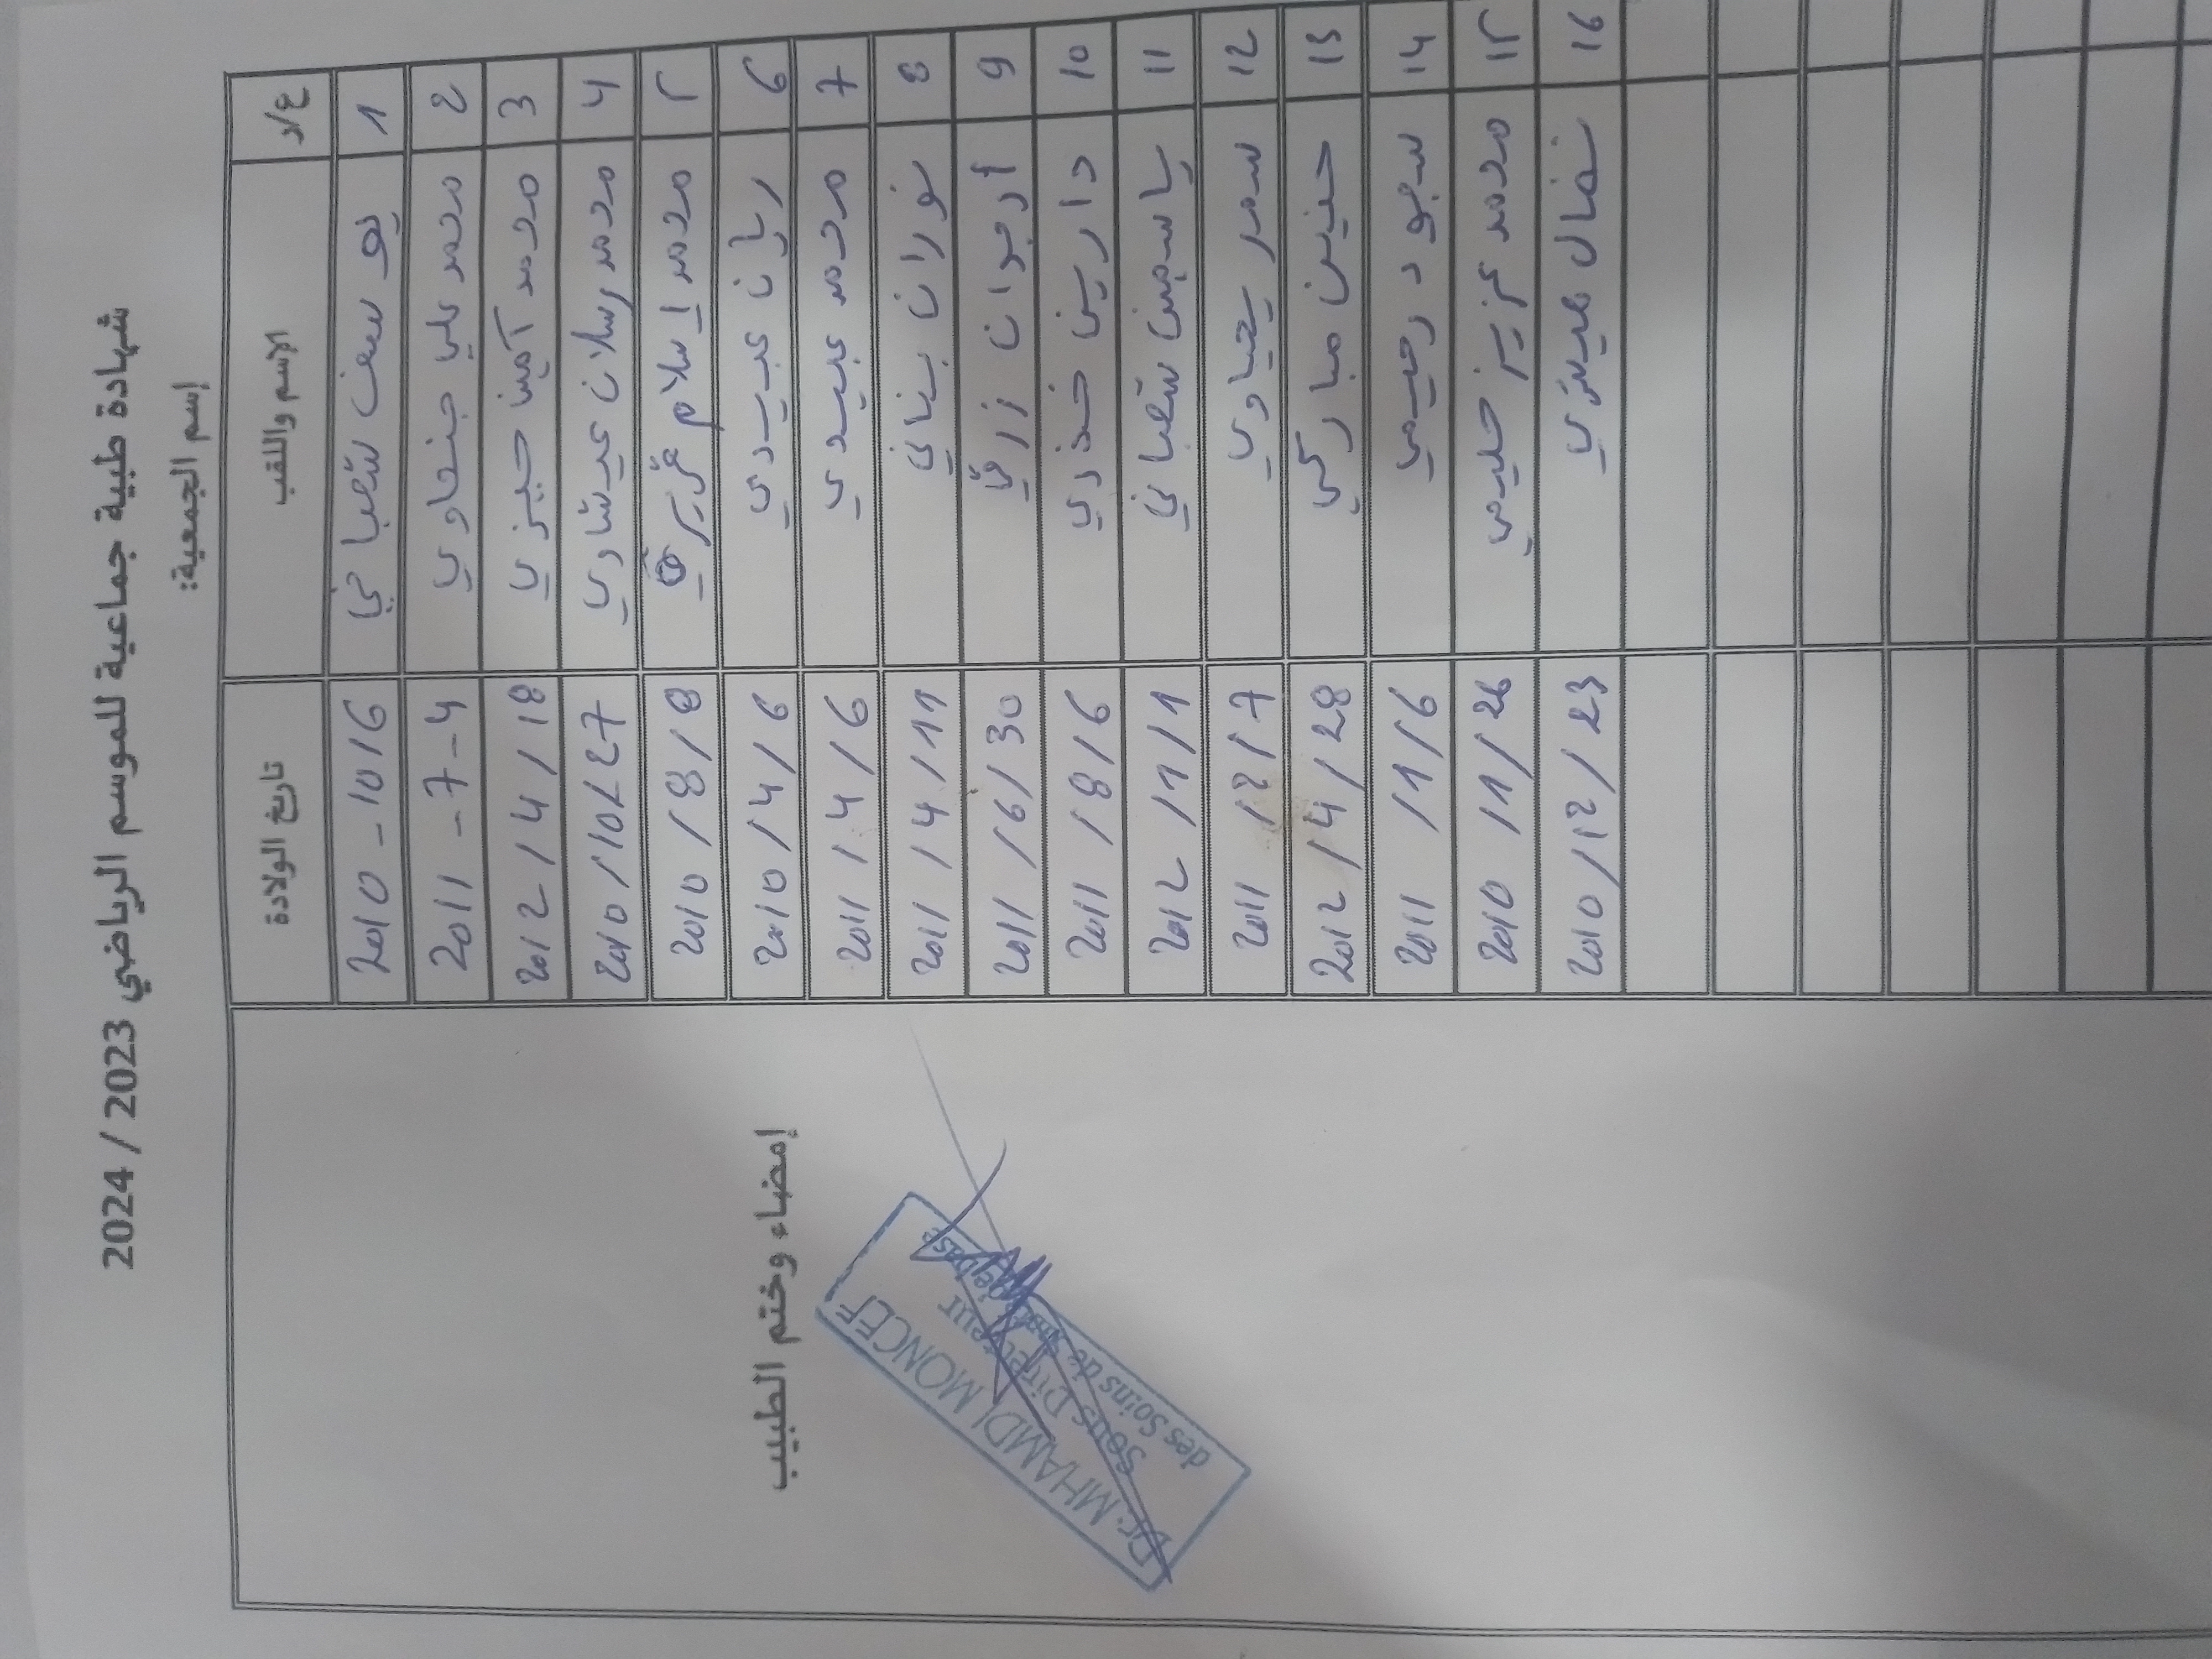 شهادة طبية جماعية للموسم الرياضي 2023 / 2024
إسم الجمعية:
ع/د الاسم واللقب تاريخ الولادة
1 يوسف شعباني 2010 - 10/6
2 محمد علي جنحاوي 2011 - 7 - 4
3 محمد آمين حيزي 2012 / 4 / 18
4 محمد رسلان عيشاوي 2010 / 10/27
5 محمد إسلام 2010 / 8 / 8
6 ريان عبيدي 2010 / 4 / 6
7 محمد عبيدي 2011 / 4 / 6
8 نوران بناني 2011 / 4 / 11
9 أرجوان زرقي 2011 / 6 / 30
10 دارين خذري 2011 / 8 / 6
11 ياسمين شعباني 2012 / 1 / 1
12 سمر يحياوي 2011 / 2 / 7
13 حنين مباركي 2012 / 4 / 28
14 سجود رحيمي 2011 / 1 / 6
15 محمد عزيز حليمي 2010 / 1 / 26
16 نضال 2010 / 12 / 23
إمضاء وختم الطبيب
Dr. MHAMDI MONCEF
Sous Directeur
des Soins de Santé de base